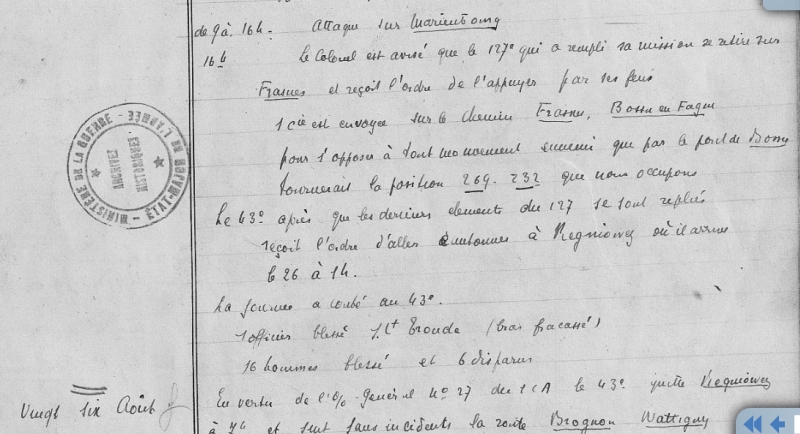 de 9 à 16h. Attaque sur Marienbourg
16h Le Colonel est avisé que le 127e qui a rempli sa mission se retire sur
Frasnes et reçoit l'ordre de l'appuyer par ses feux
1 cie est envoyée sur le chemin Frasnes, Bossu en Fagne
pour s'opposer à tout mouvement ennemi que par le pont de Bossu
tournerait la position 269. 232 que nous occupons
Le 43e après que les derniers elements du 127 se sont repliés
reçoit l'ordre d'aller cantonner à Regniowez où il arrive
le 26 à 1h.
La journée a couté au 43e.
1 officier blessé S.Lt (bras fracassé)
16 hommes blessé et 6 disparus
Vingt six Août En vertu de l'O/ Général No 27 du 1 CA le 43e quitte Regniowez
à 7h et suit sans incidents la route Brognon Wattigny
MINISTÈRE DE LA GUERRE - ETAT-MAJOR DE L'ARMÉE -
ARCHIVES
HISTORIQUES